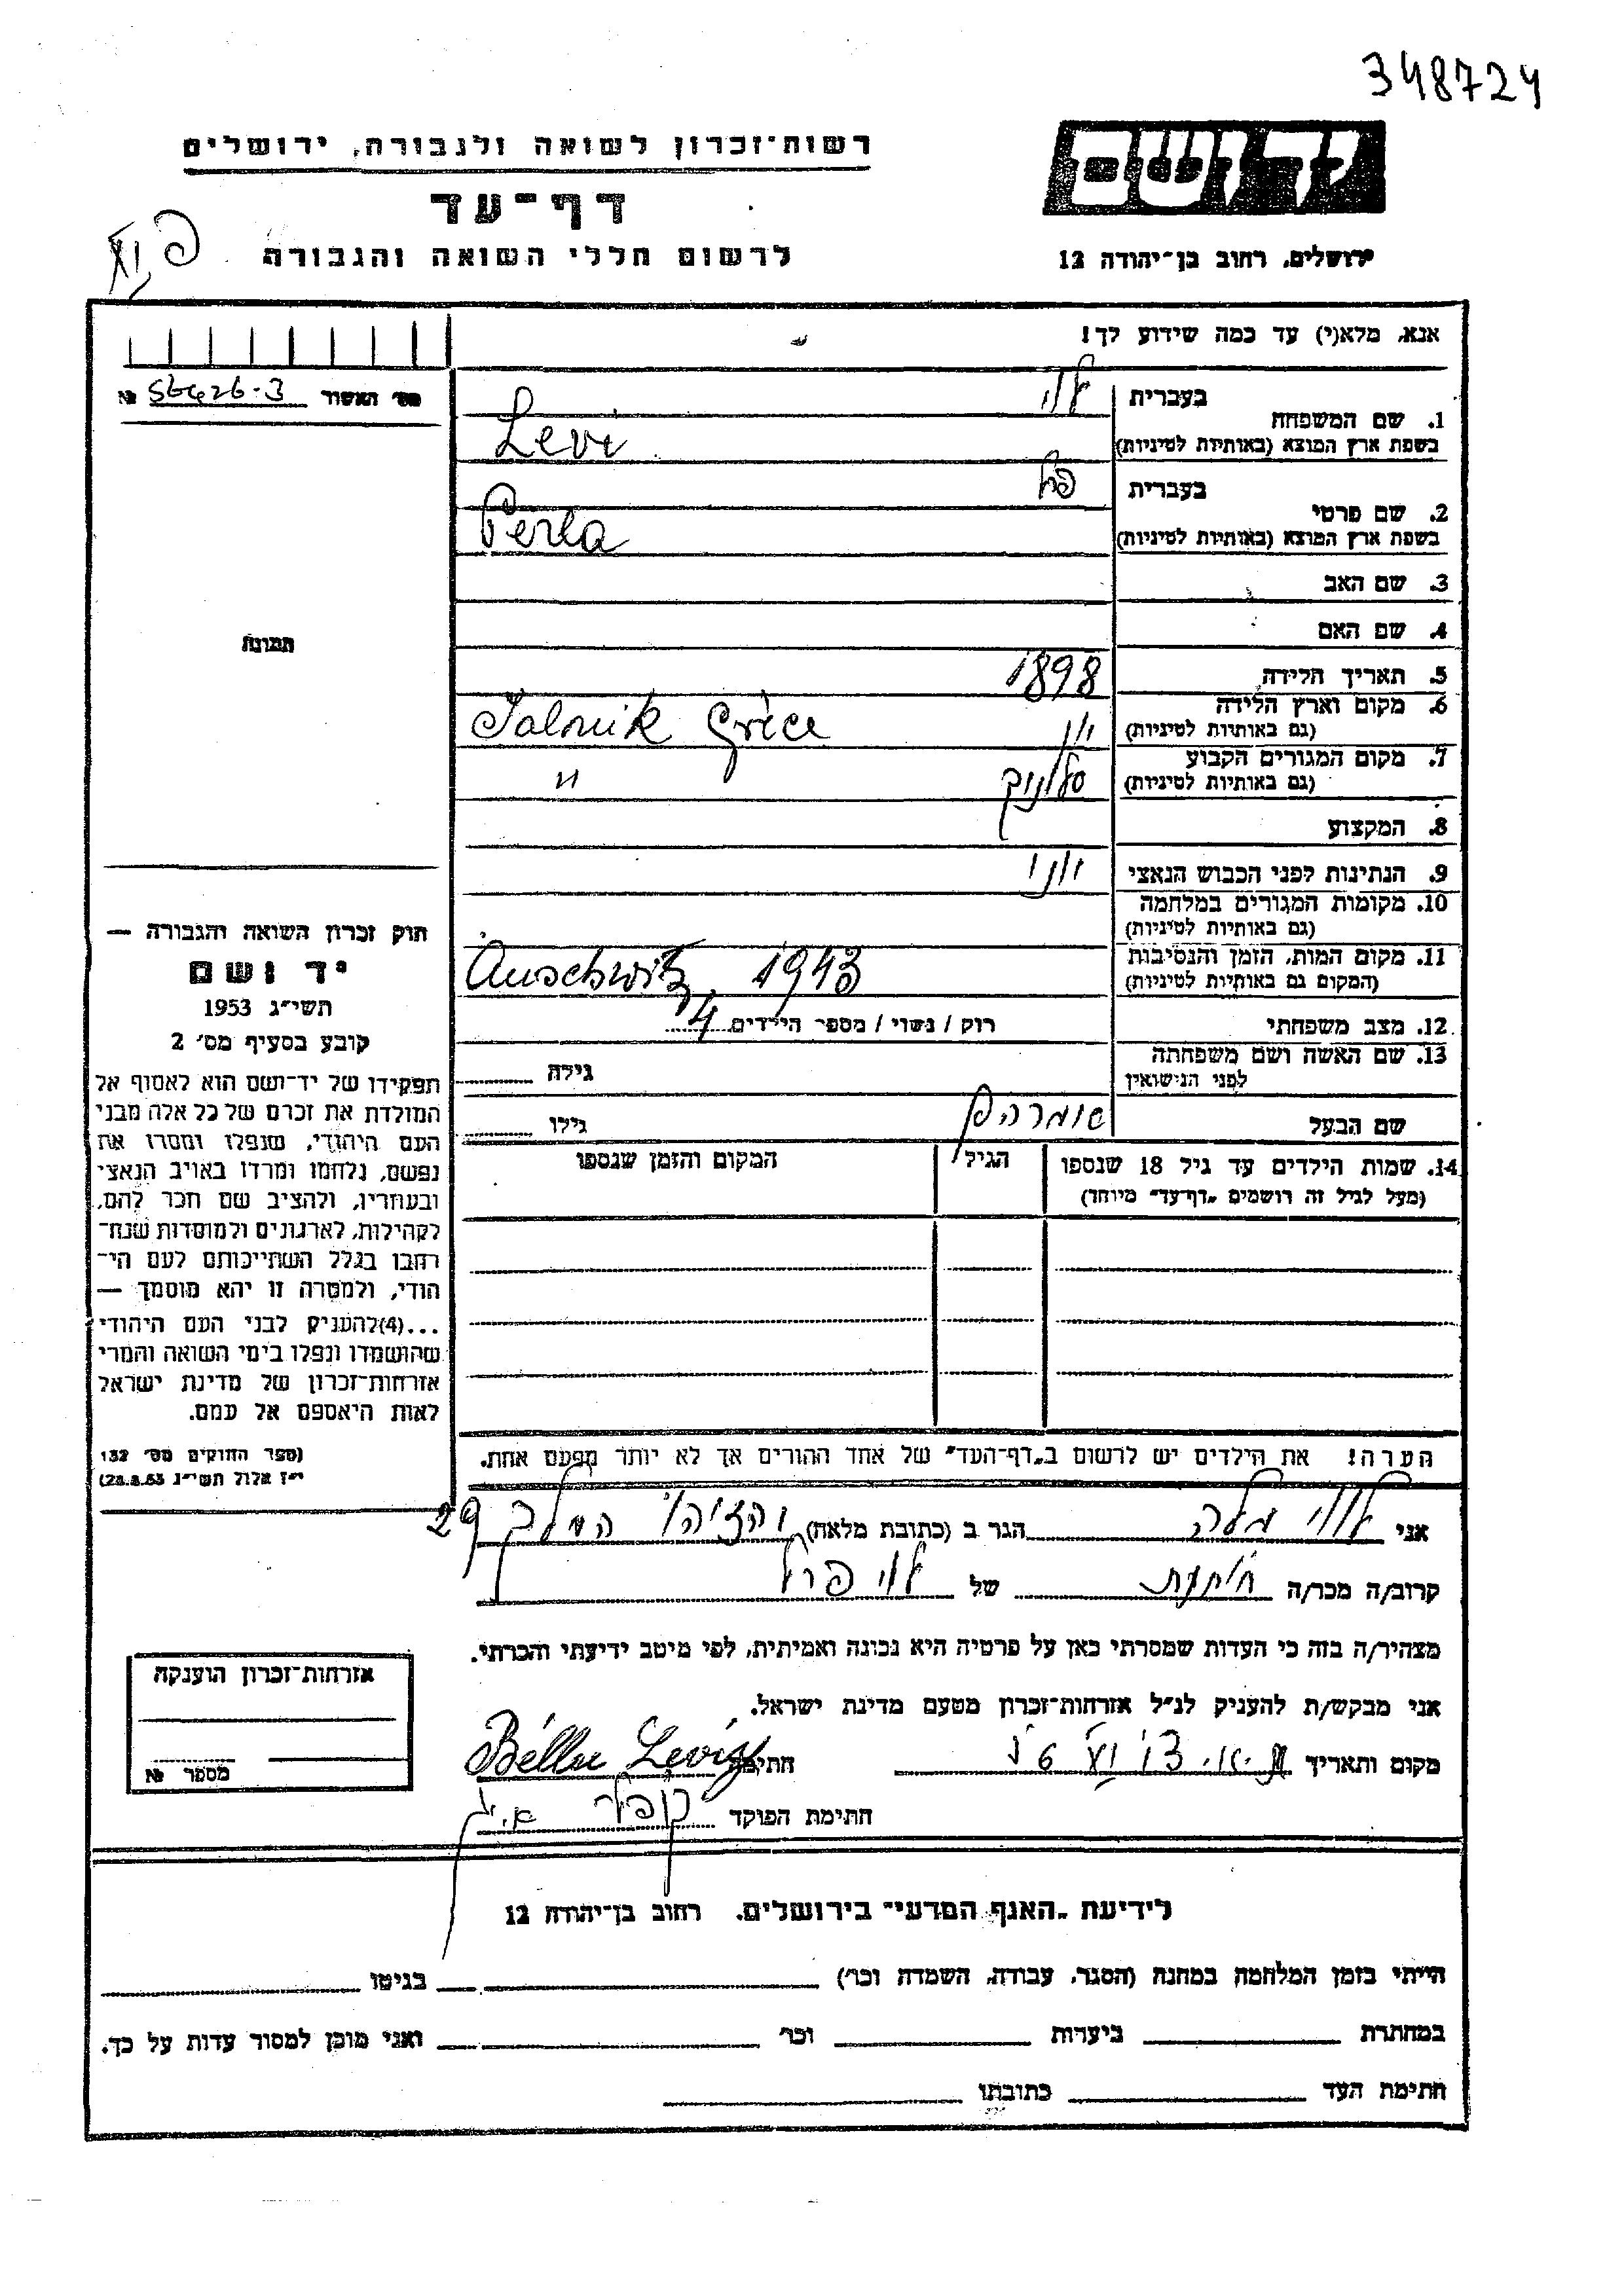 348724
רשות־זכרון לשואה ולגבורה, ירושלים
יד ושם
דף־עד
לרשום חללי השואה והגבורה
ירושלים, רחוב בן־יהודה 12
אנא, מלא(י) עד כמה שידוע לך!
מס׳ האשור №
1. שם המשפחה
בעברית לוי
בשפת ארץ המוצא (באותיות לטיניות) Levi
2. שם פרטי
בעברית פרל
בשפת ארץ המוצא (באותיות לטיניות) Perla
3. שם האב
4. שם האם
5. תאריך הלידה 1898
6. מקום וארץ הלידה יון
(גם באותיות לטיניות) Salonik Grèce
7. מקום המגורים הקבוע סלוניק
(גם באותיות לטיניות) "
8. המקצוע
9. הנתינות לפני הכבוש הנאצי
10. מקומות המגורים במלחמה
(גם באותיות לטיניות)
11. מקום המות, הזמן והנסיבות
(המקום גם באותיות לטיניות) Auschwitz, 1943
12. מצב משפחתי רווק / נשוי / מספר הילדים 4
13. שם האשה ושם משפחתה
לפני הנישואין גילה
שם הבעל גילו
14. שמות הילדים עד גיל 18 שנספו הגיל המקום והזמן שנספו
(מעל לגיל זה רושמים „דף־עד״ מיוחד)
הערה! את הילדים יש לרשום ב„דף־העד״ של אחד ההורים אך לא יותר מפעם אחת.
תמונה
חוק זכרון השואה והגבורה —
יד ושם
תשי״ג 1953
קובע בסעיף מס׳ 2
תפקידו של יד־ושם הוא לאסוף אל
המולדת את זכרם של כל אלה מבני
העם היהודי, שנפלו ומסרו את
נפשם, נלחמו ומרדו באויב הנאצי
ובעוזריו, ולהציב שם וזכר להם,
לקהילות, לארגונים ולמוסדות שנח־
רבו בגלל השתייכותם לעם הי־
הודי, ולמטרה זו יהא מוסמך —
...(4)להעניק לבני העם היהודי
שהושמדו ונפלו בימי השואה והמרי
אזרחות־זכרון של מדינת ישראל
לאות היאספם אל עמם.
(ספר החוקים מס׳ 132
י״ז אלול תשי״ג 28.8.53)
אני לוי הגר ב (כתובת מלאה) המלך 29
קרוב/ה מכר/ה של לוי פרל
מצהיר/ה בזה כי העדות שמסרתי כאן על פרטיה היא נכונה ואמיתית, לפי מיטב ידיעתי והכרתי.
אני מבקש/ת להעניק לנ״ל אזרחות־זכרון מטעם מדינת ישראל.
מקום ותאריך חתימה
חתימת הפוקד
אזרחות־זכרון הוענקה
מספר №
לידיעת „האגף המדעי״ בירושלים, רחוב בן־יהודה 12
הייתי בזמן המלחמה במחנה (הסגר, עבודה, השמדה וכו׳) בגיטו
במחתרת ביערות וכו׳ ואני מוכן למסור עדות על כך.
חתימת העד כתובתו